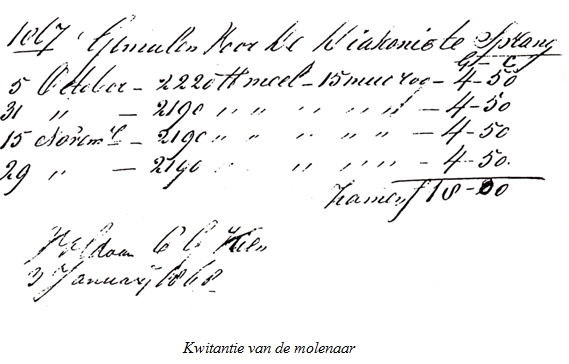 1867 Gemalen Voor De Diakonie te Sprang
Gl - C
5 October - 2220 ℔ meel - 15 mud rog - 4-50
31 " - 2190 " " " " " - 4-50
15 Novemb - 2190 " " " " " - 4-50
29 " - 2190 " " " " - 4-50.
Zamen f 18-00
Voldaan C G
3 January 1868
Kwitantie van de molenaar